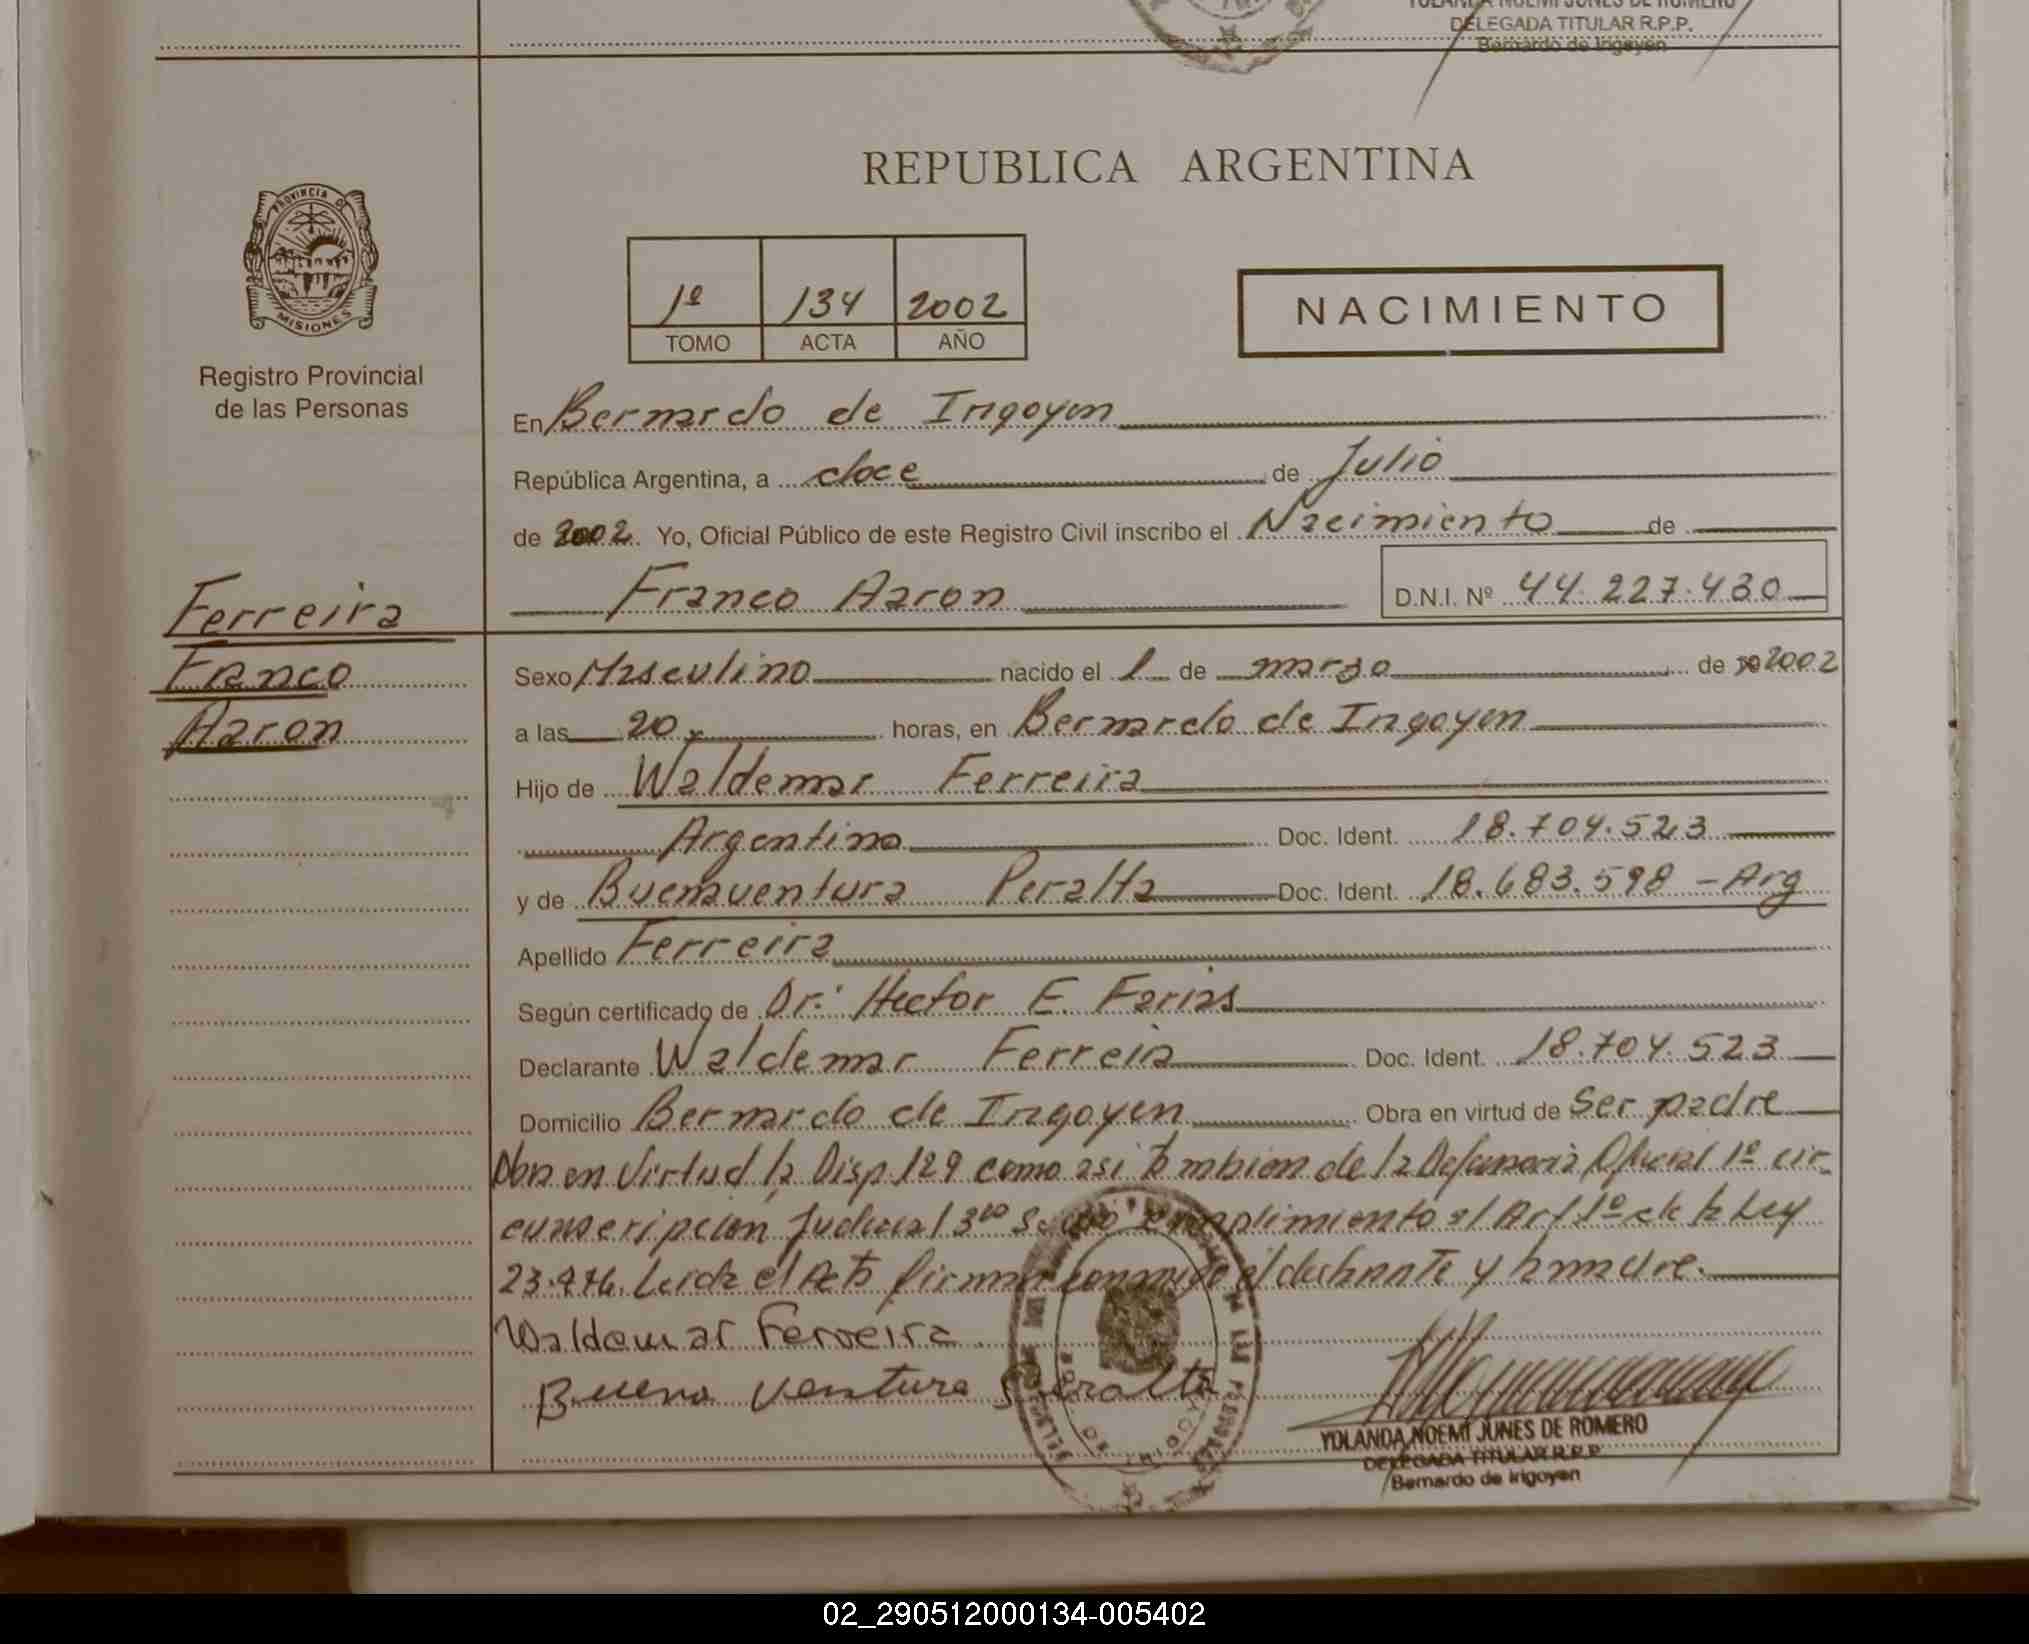 YOLANDA NOEMI JUNES DE ROMERO
DELEGADA TITULAR R.P.P.
Bernardo de Irigoyen
PROVINCIA DE
MISIONES
Registro Provincial
de las Personas
REPUBLICA ARGENTINA
1º 134 2002
TOMO ACTA AÑO
NACIMIENTO
En Bernardo de Irigoyen
República Argentina, a doce de Julio
de 2002. Yo, Oficial Público de este Registro Civil inscribo el Nacimiento de
Franco Aaron D.N.I. Nº 44.227.430
Ferreira
Franco
Aaron
Sexo Masculino nacido el 1 de marzo de 2002
a las 20 horas, en Bernardo de Irigoyen
Hijo de Waldemar Ferreira
Argentino Doc. Ident. 18.704.523
y de Buenaventura Peralta Doc. Ident. 18.683.598 - Arg
Apellido Ferreira
Según certificado de Dr. Hector E. Farias
Declarante Waldemar Ferreia Doc. Ident. 18.704.523
Domicilio Bernardo de Irigoyen Obra en virtud de Ser padre
en Virtud la Disp. 129 como asi tambien de la Defensoria Oficial 1º cir-
cunscripcion Judicial 3º cumplimiento al Art 1º de la Ley
Leida el Acta firman conmigo el declarante y la madre.
Waldemar Ferreira
Buena ventura Peralta
YOLANDA NOEMI JUNES DE ROMERO
DELEGADA TITULAR R.P.P.
Bernardo de Irigoyen
02_290512000134-005402